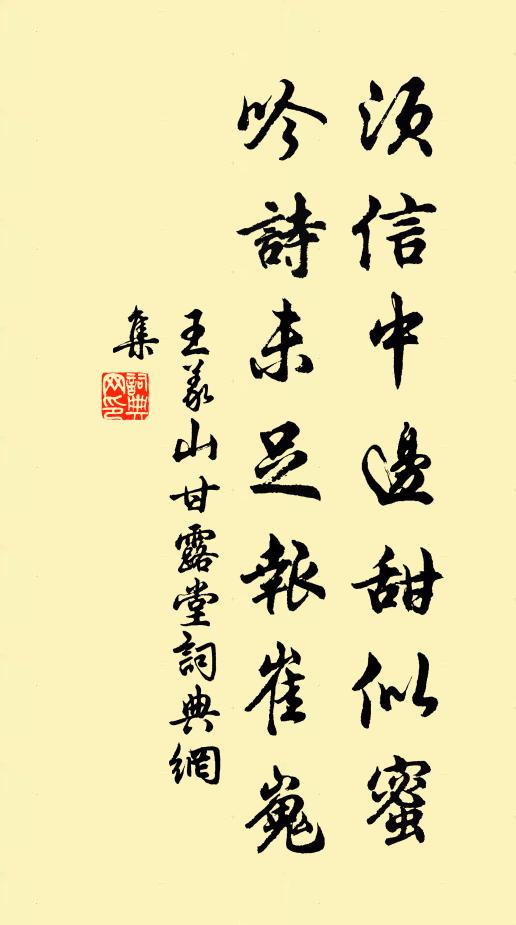 須信中邊甜似蜜
吟詩未足報崔嵬
王義山甘露堂詞典網
集
詞典网印